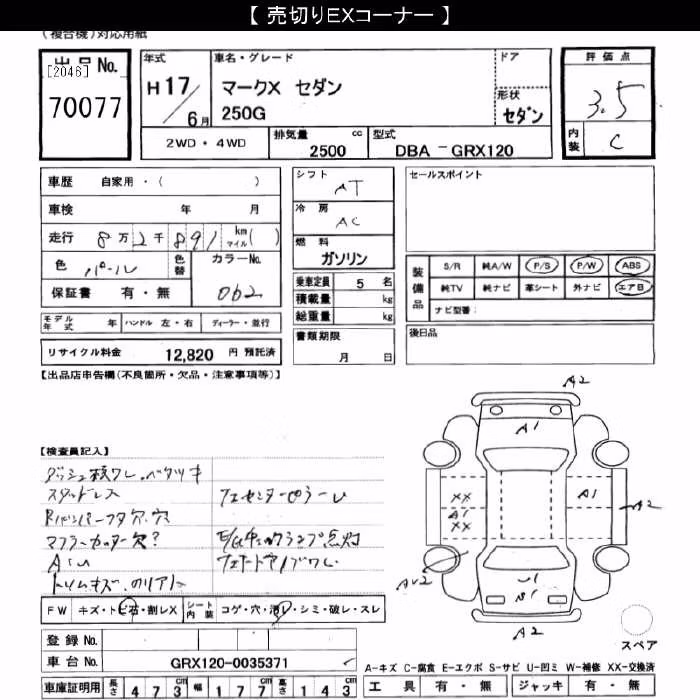 【 売切りEXコーナー 】
(複合機)対応用紙
出品 No. [2046] 70077
年式 H17/6月
車名・グレード
マークX セダン
250G
ドア
形状 セダン
評価点 3.5
内装 C
2WD・4WD
排気量 2500 cc
型式 DBA － GRX120
車歴 自家用・( )
車検 年 月
走行 8万2千891 km マイル ( )
色 パール 色替
カラーNo. 062
保証書 有・無
モデル年式 年 ハンドル 左・右 ディーラー・並行
リサイクル料金 12,820 円 預託済
シフト AT
冷房 AC
燃料 ガソリン
乗車定員 5 名
積載量 kg
総重量 kg
書類期限
月 日
セールスポイント
装備品
S/R 純A/W P/S P/W ABS
純TV 純ナビ 革シート 外ナビ エアB
ナビ型番:
後日品
【出品店申告欄(不良箇所・欠品・注意事項等)】
【検査員記入】
スタッドレス
マフラーカッター欠?
FW キズ・トビ石・割レX シート内装 コゲ・穴・汚レ・シミ・破レ・スレ
登録 No.
車台 No. GRX120-0035371
車庫証明用 長さ 473cm 幅 177cm 高さ 143cm
A2
A1
XX
A1
XX
A1
A2
AU2
U1
A2
スペア
A-キズ C-腐食 E-エクボ S-サビ U-凹ミ W-補修 XX-交換済
工具 有・無 ジャッキ 有・無